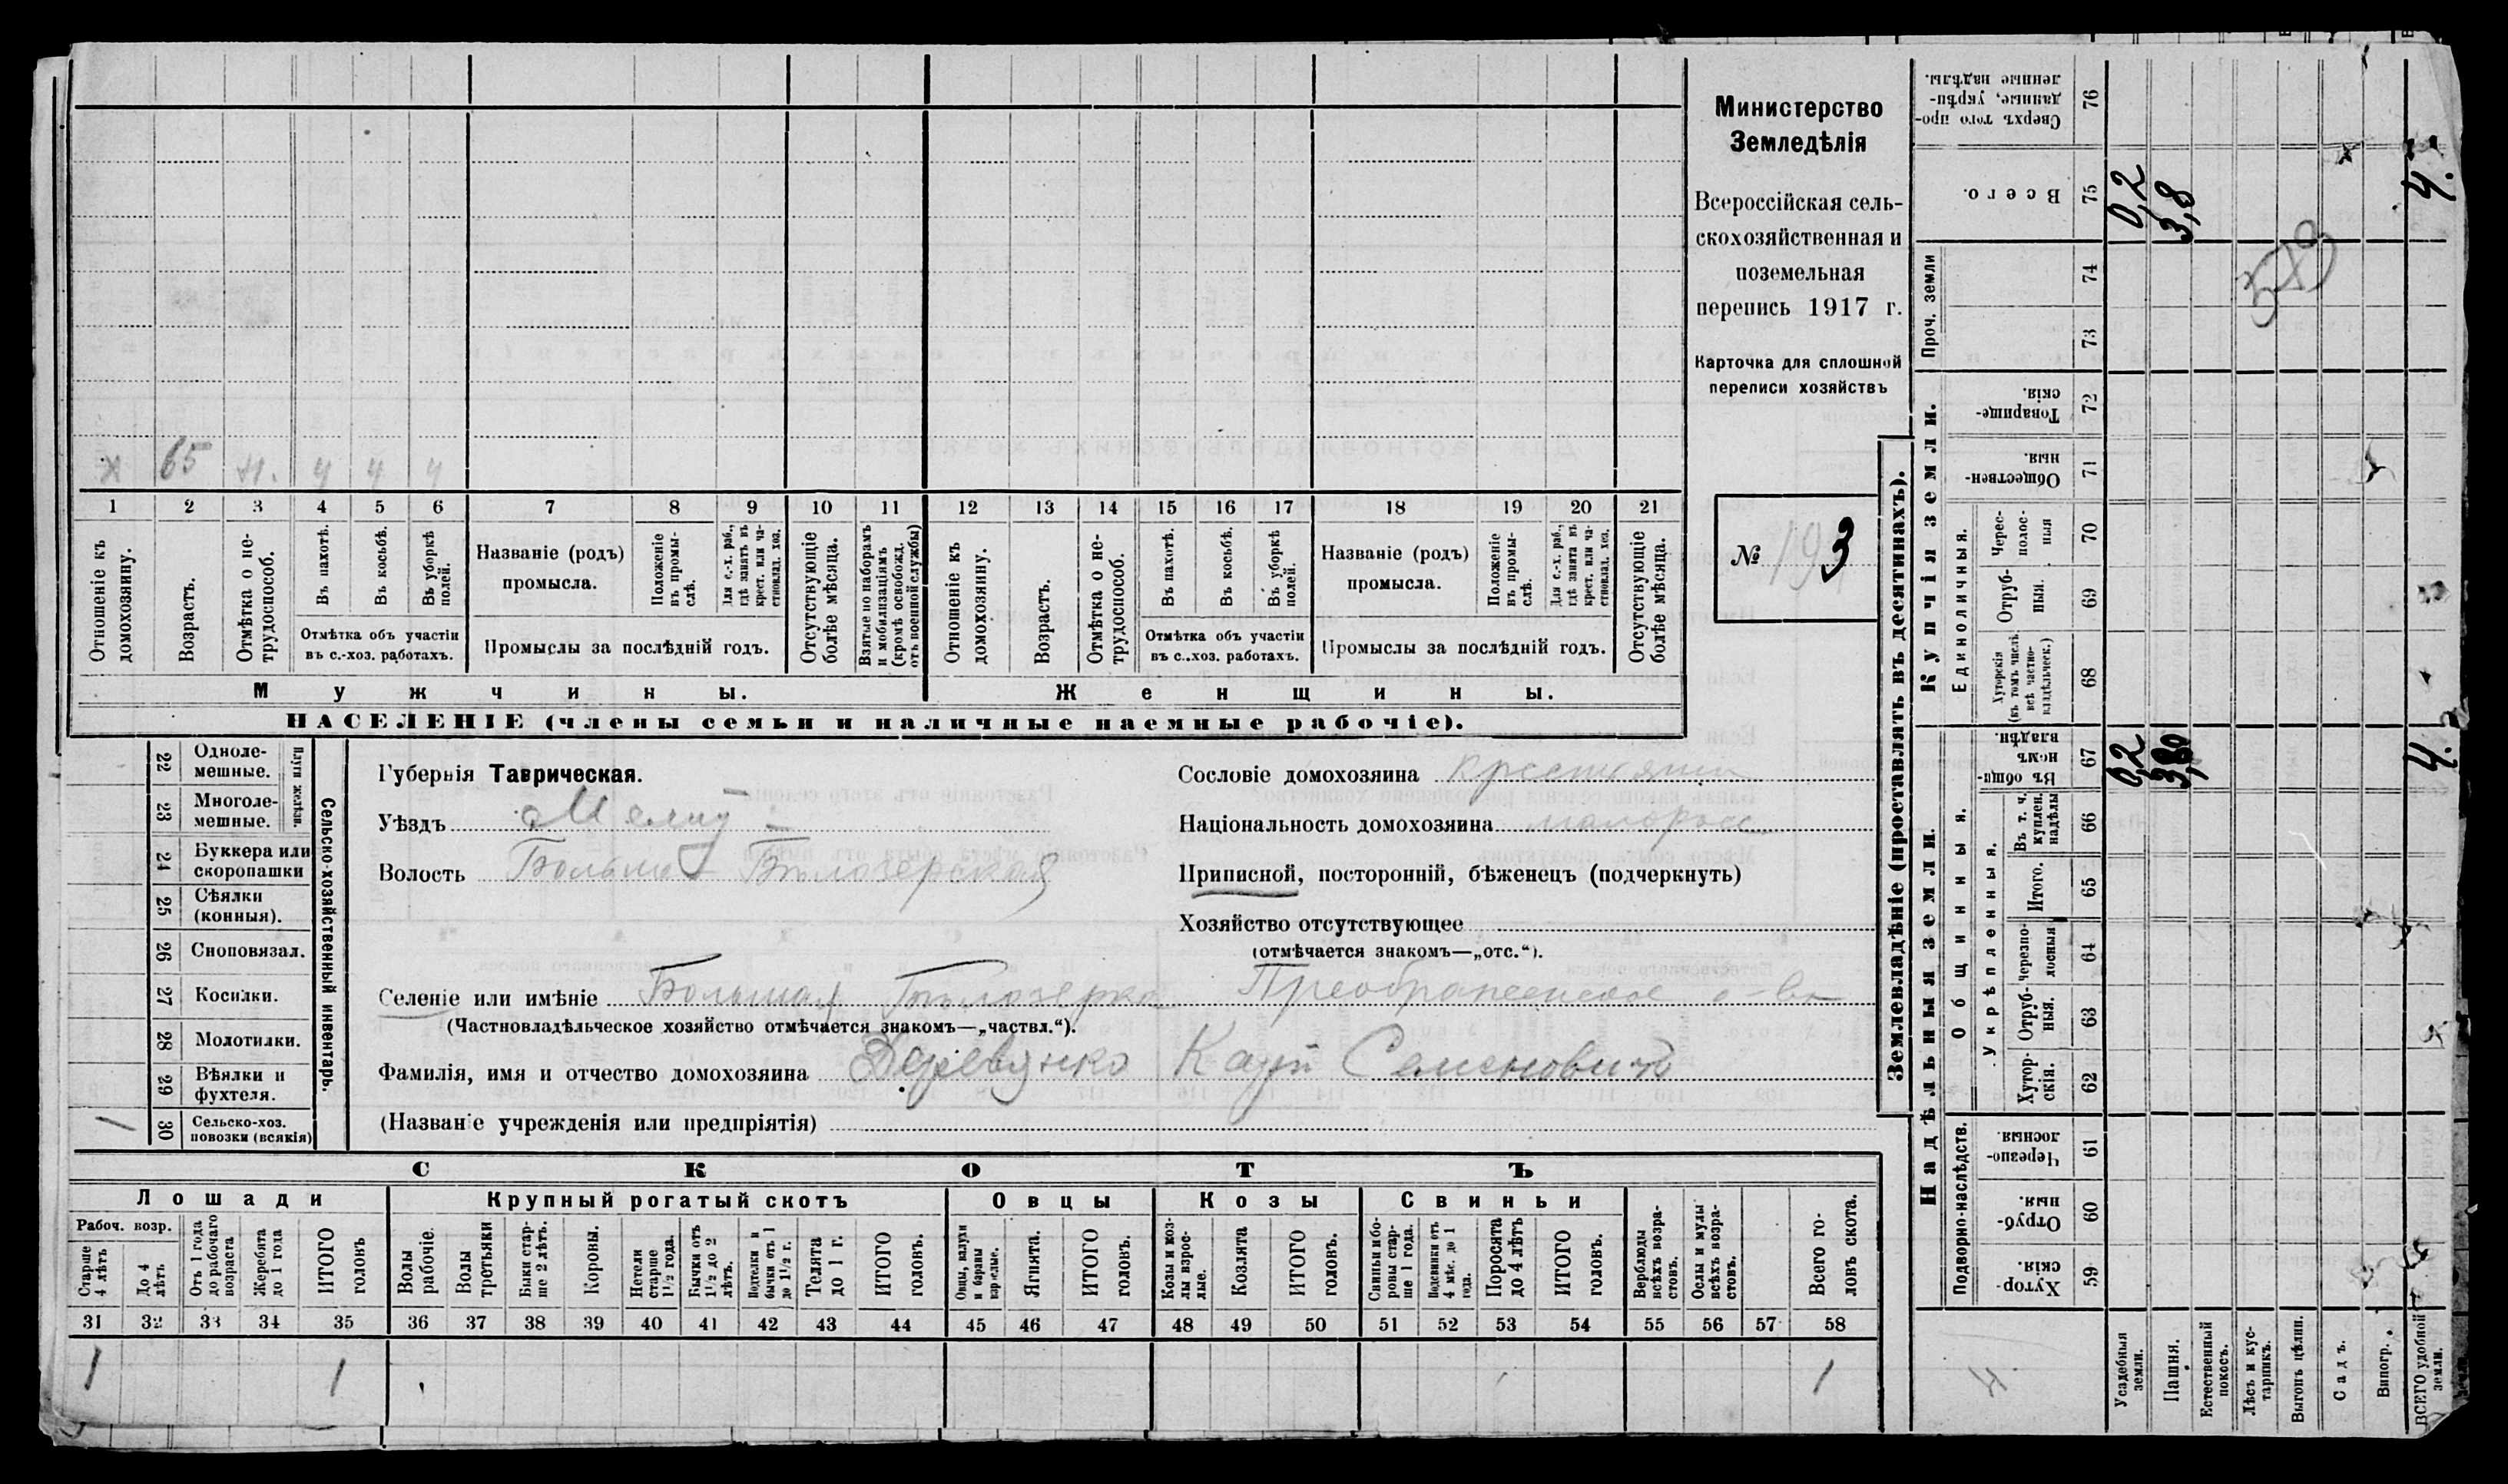 Министерство
Земледѣлія
Всероссійская сель-
скохозяйственная и
поземельная
перепись 1917 г.
Карточка для сплошной
переписи хозяйствъ
№ 3
х 65 н. ч ч ч
1 2 3 4 5 6 7 8 9 10 11 12 13 14 15 16 17 18 19 20 21
Отношеніе къ домохозяину.
Возрастъ.
Отмѣтка о не-трудоспособ.
Въ пахотѣ.
Въ косьбѣ.
Въ уборкѣ полей.
Отмѣтка объ участіи
въ с.-хоз. работахъ.
Названіе (родъ)
промысла.
Положеніе въ промы-слѣ.
Для с.-х. раб., гдѣ занятъ въ крест. или ча-стновлад. хоз.
Промыслы за послѣдній годъ.
Отсутствующіе болѣе мѣсяца.
Взятые по наборамъ и мобилизаціямъ (кромѣ освобожд. отъ военной службы)
Отношеніе къ домохозяину.
Возрастъ.
Отмѣтка о не-трудоспособ.
Въ пахотѣ.
Въ косьбѣ.
Въ уборкѣ полей.
Отмѣтка объ участіи
въ с.-хоз. работахъ.
Названіе (родъ)
промысла.
Положеніе въ промы-слѣ.
Для с.-х. раб., гдѣ занята въ крест. или ча-стновлад. хоз.
Промыслы за послѣдній годъ.
Отсутствующіе болѣе мѣсяца.
Мужчины. Женщины.
НАСЕЛЕНІЕ (члены семьи и наличные наемные рабочіе).
22 Одноле-мешные.
23 Многоле-мешные.
Плуги желѣзн.
24 Буккера или скоропашки
25 Сѣялки (конныя).
26 Сноповязал.
27 Косилки.
28 Молотилки.
29 Вѣялки и фухтеля.
1 30 Сельско-хоз. повозки (всякія)
Сельско-хозяйственный инвентарь.
Губернія Таврическая.
Уѣздъ Мелит
Волость Больше-Бѣлозерская
Сословіе домохозяина крестьянин
Національность домохозяина малоросс
Приписной, посторонній, бѣженецъ (подчеркнуть)
Хозяйство отсутствующее
(отмѣчается знакомъ—„отс.“).
Селеніе или имѣніе Большая Бѣлозерка Преображенское о-во
(Частновладѣльческое хозяйство отмѣчается знакомъ—„частвл.“).
Фамилія, имя и отчество домохозяина Деревянко Карп Семенович
(Названіе учрежденія или предпріятія)
СКОТЪ
Лошади Крупный рогатый скотъ Овцы Козы Свиньи
Рабоч. возр.
Старше 4 лѣтъ
До 4 лѣтъ
Отъ 1 года до рабочаго возраста
Жеребята до 1 года
ИТОГО головъ
Волы рабочіе.
Волы третьяки
Быки стар-ше 2 лѣтъ.
Коровы.
Нетели старше 1½ года.
Бычки отъ 1½ до 2 лѣтъ.
Подтелки и бычки отъ 1 до 1½ г.
Телята до 1 г.
ИТОГО головъ.
Овцы, валухи и бараны взрослые.
Ягнята.
ИТОГО головъ.
Козы и коз-лы взрос-лые.
Козлята
ИТОГО головъ.
Свиньи и бо-ровы стар-ше 1 года.
Подсвинки отъ 4 мѣс. до 1 года.
Поросята до 4 лѣтъ
ИТОГО головъ.
Верблюды всѣхъ возра-стовъ.
Ослы и мулы всѣхъ возра-стовъ.
Всего го-ловъ скота.
31 32 33 34 35 36 37 38 39 40 41 42 43 44 45 46 47 48 49 50 51 52 53 54 55 56 57 58
1 1 1
Землевладѣніе (проставлять въ десятинахъ).
Купчія земли.
Надѣльныя земли.
Сверхъ того про-данные, укрѣп-ленные надѣлы. 76
Всего. 75 0,2 3,8 4.
Проч. земли 74 73
Товарище-скія. 72
Обществен-ныя. 71
Единоличныя.
Черес-полос-ныя 70
Отруб-ныя. 69
Хуторскія (въ томъ числѣ всѣ частно-владѣльческ.) 68
Общинныя.
Въ общин-номъ владѣн. 67 0,2 3,80 4.
Укрѣпленныя.
Въ т. ч. куплен. надѣлы 66
Итого. 65
Черезпо-лосныя 64
Отруб-ныя. 63
Хутор-скія. 62
Подворно-наслѣдств.
Черезпо-лосныя. 61
Отруб-ныя. 60
Хутор-скія. 59
Усадебныя земли.
Пашня.
Естественный покосъ.
Лѣсъ и кус-тарникъ.
Выгонъ цѣлин.
Садъ.
Виногр.
ВСЕГО удобной земли.